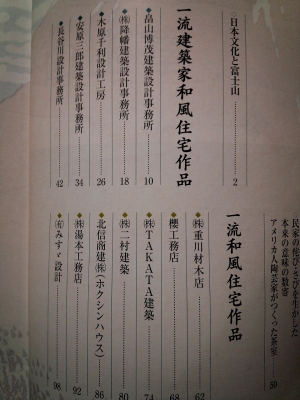 日本文化と富士山 2
一流建築家和風住宅作品
◆畠山博茂建築設計事務所 10
◆㈱降幡建築設計事務所 18
◆木原千利設計工房 26
◆安原三郎建築設計事務所 34
◆長谷川設計事務所 42
本来の意味の数寄
アメリカ人陶芸家がつくった茶室 50
一流和風住宅作品
◆㈱重川材木店 62
◆櫻工務店 68
◆㈱TAKATA建築 74
◆㈱二村建築 80
◆北信商建㈱(ホクシンハウス) 86
◆㈱湯本工務店 92
◆㈲みすゞ設計 98